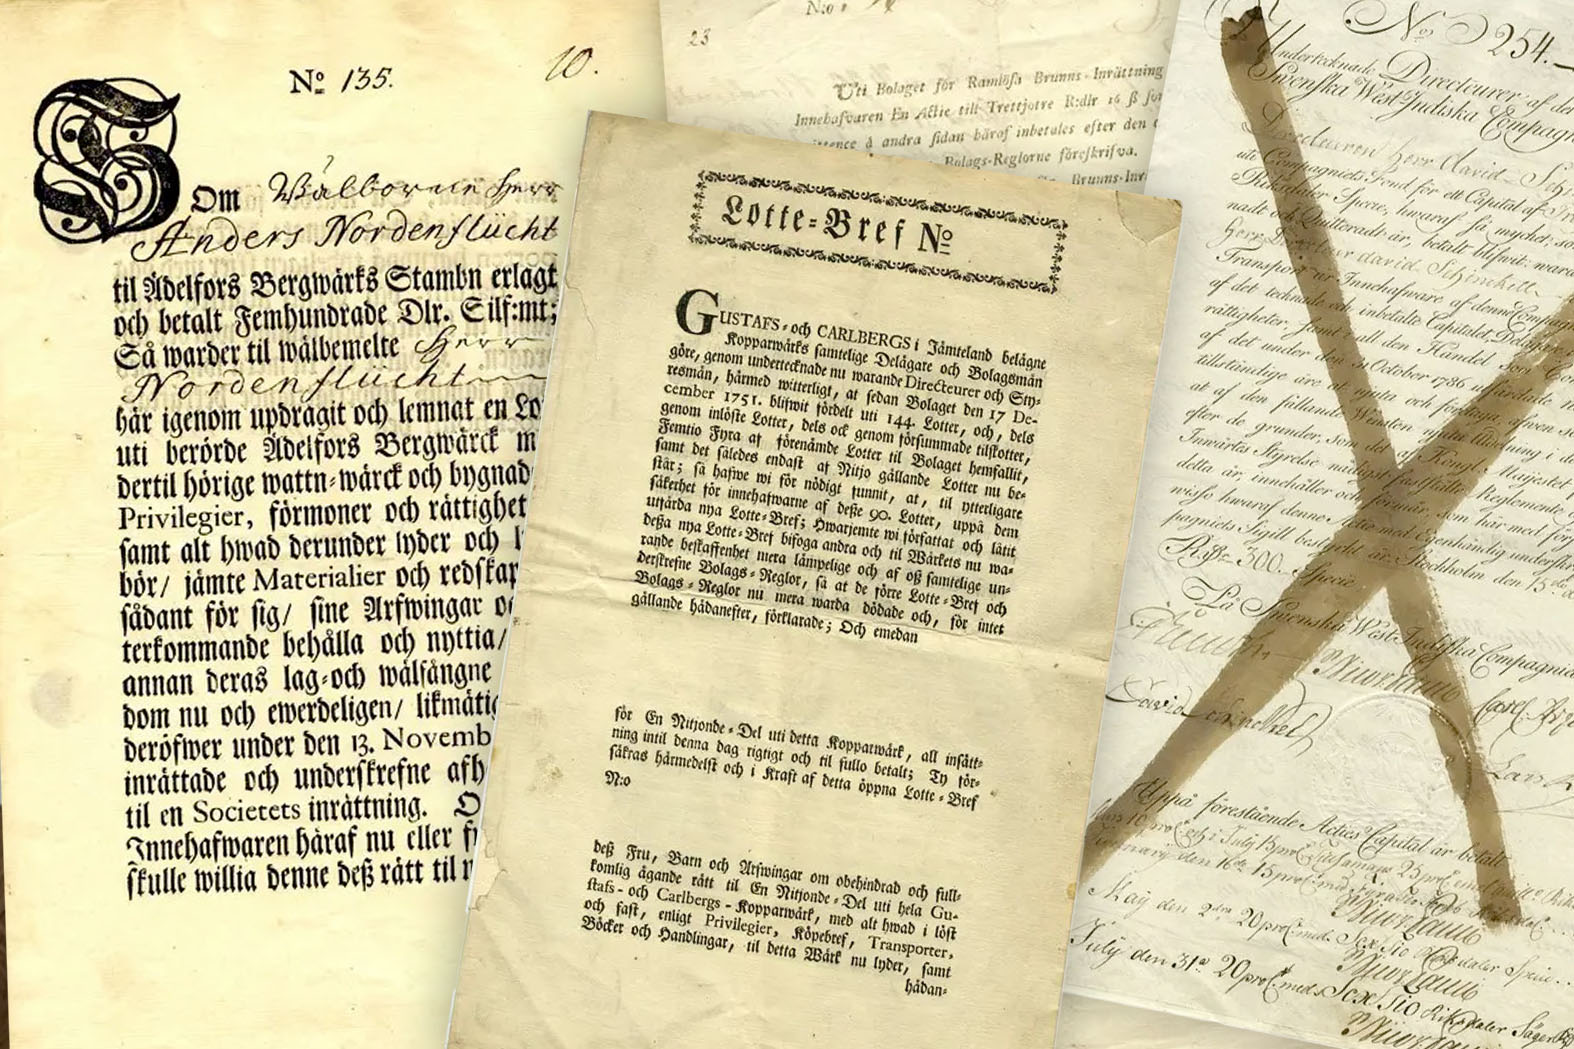 No 135.
10.
Som Wälborne Herr
Anders Nordenflücht
til Ädelfors Bergwärks Stambn erlagt
och betalt Femhundrade Dlr. Silf:mt;
Så warder til wälbemelte Herr
Nordenflücht
här igenom updragit och lemnat en Lo
uti berörde Ädelfors Bergwärck m
dertil hörige wattn-wärck och bygnad
Privilegier, förmoner och rättighet
samt alt hwad derunder lyder och l
bör/ jämte Materialier och redskap
sådant för sig/ sine Arfwingar o
terkommande behålla och nyttia/
annan deras lag-och wälfångne
dom nu och ewerdeligen/ likmätig
deröfwer under den 13. Novemb
inrättade och underskrefne afh
til en Societets inrättning. O
Innehafwaren häraf nu eller fr
skulle willia denne deß rätt til
N:o
23
Uti Bolaget för Ramlösa Brunns-Inrättning
Innehafvaren En Actie till Trettjotre R:dlr 16 ß
å andra sidan häraf inbetales efter den
Bolags-Reglorne föreskrifva.
Brunns-Inr
Lotte-Bref No
GUSTAFS-och CARLBERGS i Jämteland belägne
Kopparwärks samtelige Delägare och Bolagsmän
göre, genom undertecknade nu warande Directeurer och Sty-
resmän, härmed witterligt, at sedan Bolaget den 17 De-
cember 1751. blifwit fördelt uti 144. Lotter, och, dels
genom inlöste Lotter, dels ock genom försummade tilskotter,
Femtio Fyra af förenämde Lotter til Bolaget hemfallit,
samt det således endast af Nitjo gällande Lotter nu be-
står; så hafwe wi för nödigt funnit, at, til ytterligare
säkerhet för innehafwarne af deße 90. Lotter, uppå dem
utfärda nya Lotte-Bref; Hwarjemte wi författat och låtit
deßa nya Lotte-Bref bifoga andra och til Wärkets nu wa-
rande beskaffenhet mera lämpelige och af oß samtelige un-
derskrefne Bolags-Reglor, så at de förre Lotte-Bref och
Bolags-Reglor nu mera warda dödade och, för intet
gällande hädanefter, förklarade; Och emedan
för En Nitjonde-Del uti detta Kopparwärk, all insätt-
ning intil denna dag rigtigt och til fullo betalt; Ty för-
säkras härmedelst och i Kraft af detta öppna Lotte-Bref
N:o
deß Fru, Barn och Arfwingar om obehindrad och full-
komlig ägande rätt til En Nitjonde-Del uti hela Gu-
stafs- och Carlbergs-Kopparwärk, med alt hwad i löst
och fast, enligt Privilegier, Köpebref, Transporter,
Böcker och Handlingar, til detta Wärk nu lyder, samt
hädan-
No 254.
Undertecknade Directeurer af den
Swenska West-Indiska Compagni
Directeuren Herr David Sch
uti Compagniets Fond för ett Capital af
Riksdaler Specie, hwaraf så mycket so
nadt och Quitteradt är, betalt blifwit: ward
Herr Directeur david Schinckell
Transport är Innehafware af denne Compagn
af det tecknade och inbetalte Capitalet, Delägare
rättigheter, samt all den Handel som Com
af det under den 31 October 1786 utfärdade
tillständige äre at njuta och förefaga, äfwen so
at af den fallande Winsten njuta Utdelning i de
efter de grunder, som det af Kongl. Maijestet
Inwärtes Styrelse nådigst fastställte Reglemente
detta är, innehåller och förmår, som här med för
wisso hwaraf denne Actie med Egenhändig underskri
pagniets Sigill bestyrkt är. Stockholm den 15
300. Specie
På Swenska West-Indiska Compagnie
Uppå förestående Acties Capital är betalt
May den 2dra 20 proC:t med Sex Tio Riksdaler Specie
July den 31a 20 proC:t med Sex Tio Riksdaler